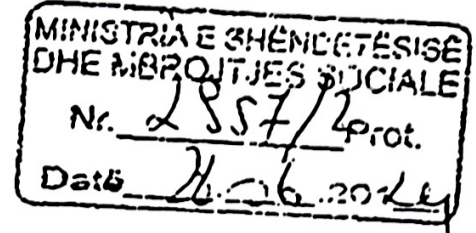 MINISTRIA E SHËNDETËSISË
DHE MBROJTJES SOCIALE
Nr. 2557/2 Prot.
Datë .06.2024